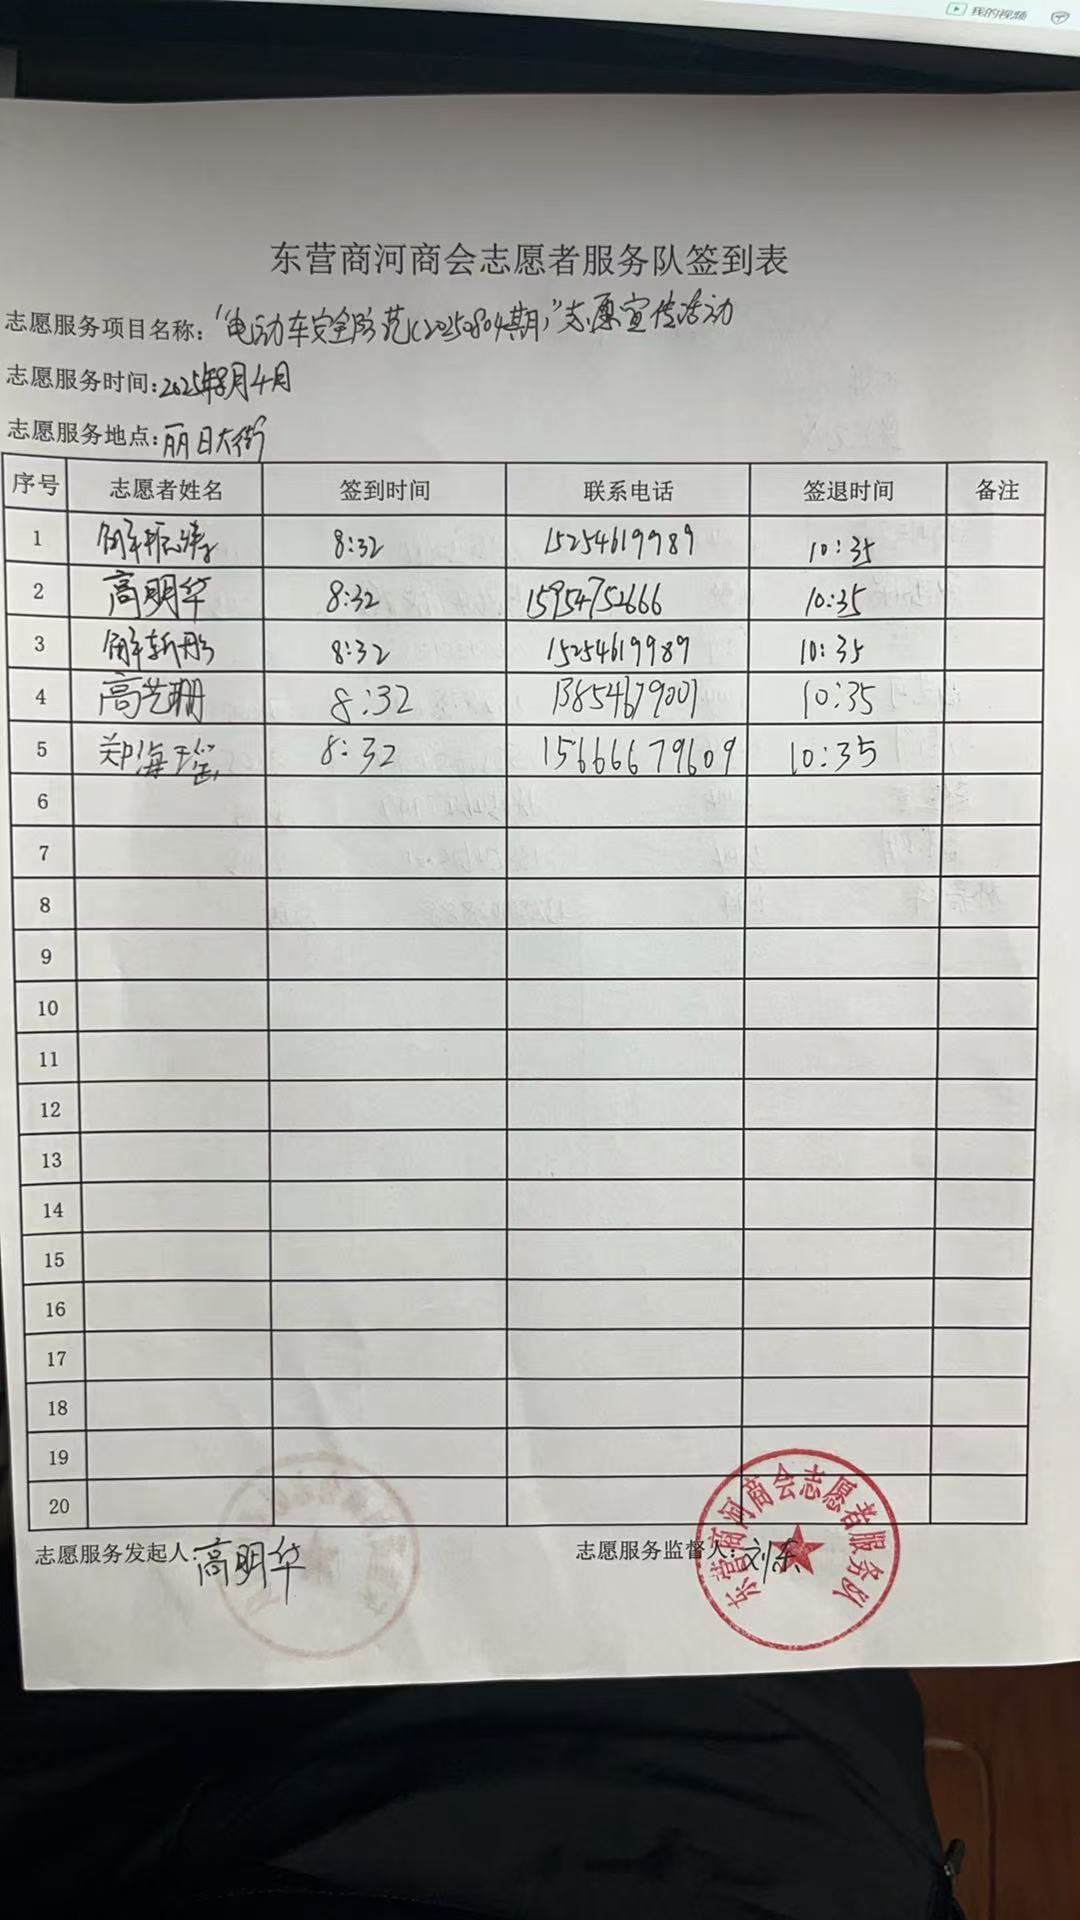 我的视频
东营商河商会志愿者服务队签到表
志愿服务项目名称："电动车安全防范(20250804期)"志愿宣传活动
志愿服务时间：2025年8月4日
志愿服务地点：丽日大街
序号 志愿者姓名 签到时间 联系电话 签退时间 备注
1 解振涛 8:32 15254619989 10:35
2 高明华 8:32 15954752666 10:35
3 解斩彤 8:32 15254619989 10:35
4 高艺珊 8:32 13854679007 10:35
5 郑海瑶 8:32 15666679609 10:35
6
7
8
9
10
11
12
13
14
15
16
17
18
19
20
志愿服务发起人：高明华 志愿服务监督人：刘东
东营商河商会志愿者服务队